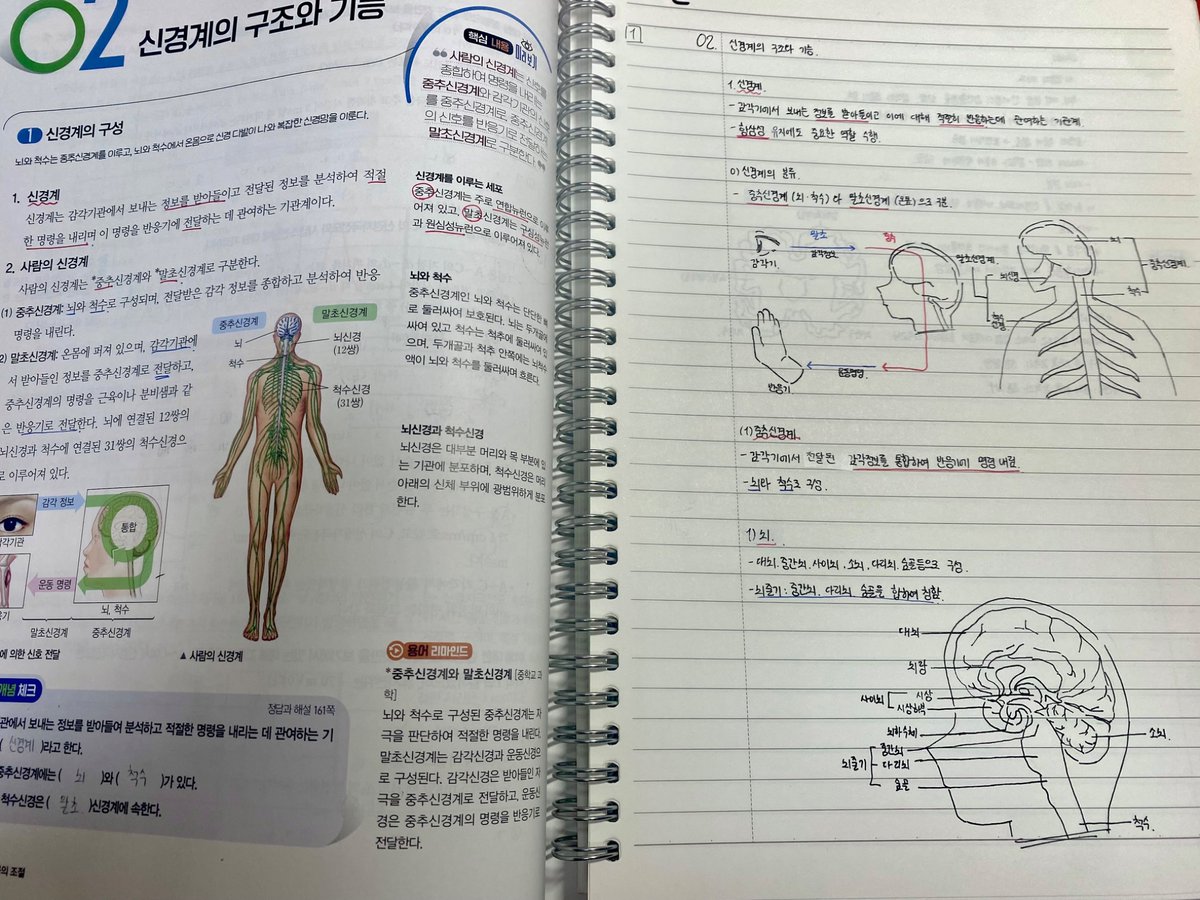 02 신경계의 구조와 기능
핵심 내용 미리보기
사람의 신경계는 신호를
종합하여 명령을 내리는
중추신경계와 감각기관의 신호
를 중추신경계로
의 신호를 반응기로 전달하는
말초신경계로 구분한다.
1 신경계의 구성
뇌와 척수는 중추신경계를 이루고, 뇌와 척수에서 온몸으로 신경 다발이 나와 복잡한 신경망을 이룬다.
1. 신경계
신경계는 감각기관에서 보내는 정보를 받아들이고 전달된 정보를 분석하여 적절
한 명령을 내리며 이 명령을 반응기에 전달하는 데 관여하는 기관계이다.
2. 사람의 신경계
사람의 신경계는 *중추신경계와 *말초신경계로 구분한다.
(1) 중추신경계: 뇌와 척수로 구성되며, 전달받은 감각 정보를 종합하고 분석하여 반응
명령을 내린다.
2) 말초신경계: 온몸에 퍼져 있으며, 감각기관에
서 받아들인 정보를 중추신경계로 전달하고,
중추신경계의 명령을 근육이나 분비샘과 같
은 반응기로 전달한다. 뇌에 연결된 12쌍의
뇌신경과 척수에 연결된 31쌍의 척수신경으
로 이루어져 있다.
중추신경계
말초신경계
뇌
척수
뇌신경
(12쌍)
척수신경
(31쌍)
감각 정보
통합
각기관
운동 명령
응기
뇌, 척수
말초신경계
중추신경계
에 의한 신호 전달
▲ 사람의 신경계
개념 체크
정답과 해설 161쪽
관에서 보내는 정보를 받아들여 분석하고 적절한 명령을 내리는 데 관여하는 기
( 신경계 )라고 한다.
중추신경계에는 ( 뇌 )와 ( 척수 )가 있다.
척수신경은 ( 말초 )신경계에 속한다.
의 조절
신경계를 이루는 세포
중추신경계는 주로 연합뉴런으로 이루
어져 있고, 말초신경계는 구심성뉴런
과 원심성뉴런으로 이루어져 있다.
뇌와 척수
중추신경계인 뇌와 척수는 단단한 뼈
로 둘러싸여 보호된다. 뇌는 두개골에
싸여 있고 척수는 척추에 둘러싸여 있
으며, 두개골과 척추 안쪽에는 뇌척수
액이 뇌와 척수를 둘러싸며 흐른다.
뇌신경과 척수신경
뇌신경은 대부분 머리와 목 부분에 있
는 기관에 분포하며, 척수신경은 머리
아래의 신체 부위에 광범위하게 분포
한다.
용어 리마인드
*중추신경계와 말초신경계 [중학교 과
학]
뇌와 척수로 구성된 중추신경계는 자
극을 판단하여 적절한 명령을 내린다.
말초신경계는 감각신경과 운동신경으
로 구성된다. 감각신경은 받아들인 자
극을 중추신경계로 전달하고, 운동신
경은 중추신경계의 명령을 반응기로
전달한다.
[1]
02. 신경계의 구조와 기능.
1. 신경계.
- 감각기에서 보내는 정보를 받아들이고 이에 대해 적절히 반응하는데 관여하는 기관계.
- 항상성 유지에도 중요한 역할 수행.
0) 신경계의 분류.
- 중추신경계 (뇌·척수) 와 말초신경계 (온몸)으로 구분
감각기.
말초
감각정보
중추
운동명령
반응기.
말초신경계.
뇌신경
척수신경
뇌
척수
중추신경계.
(1) 중추신경계.
- 감각기에서 전달된 감각정보를 통합하여 반응기에 명령 내림.
- 뇌와 척수로 구성.
1) 뇌.
- 대뇌, 중간뇌, 사이뇌, 소뇌, 다리뇌, 숨골등으로 구성.
- 뇌줄기: 중간뇌, 다리뇌, 숨골을 합하여 칭함
대뇌
뇌량
사이뇌
시상
시상하부
뇌하수체
뇌줄기
중간뇌
다리뇌
숨골
소뇌
척수.